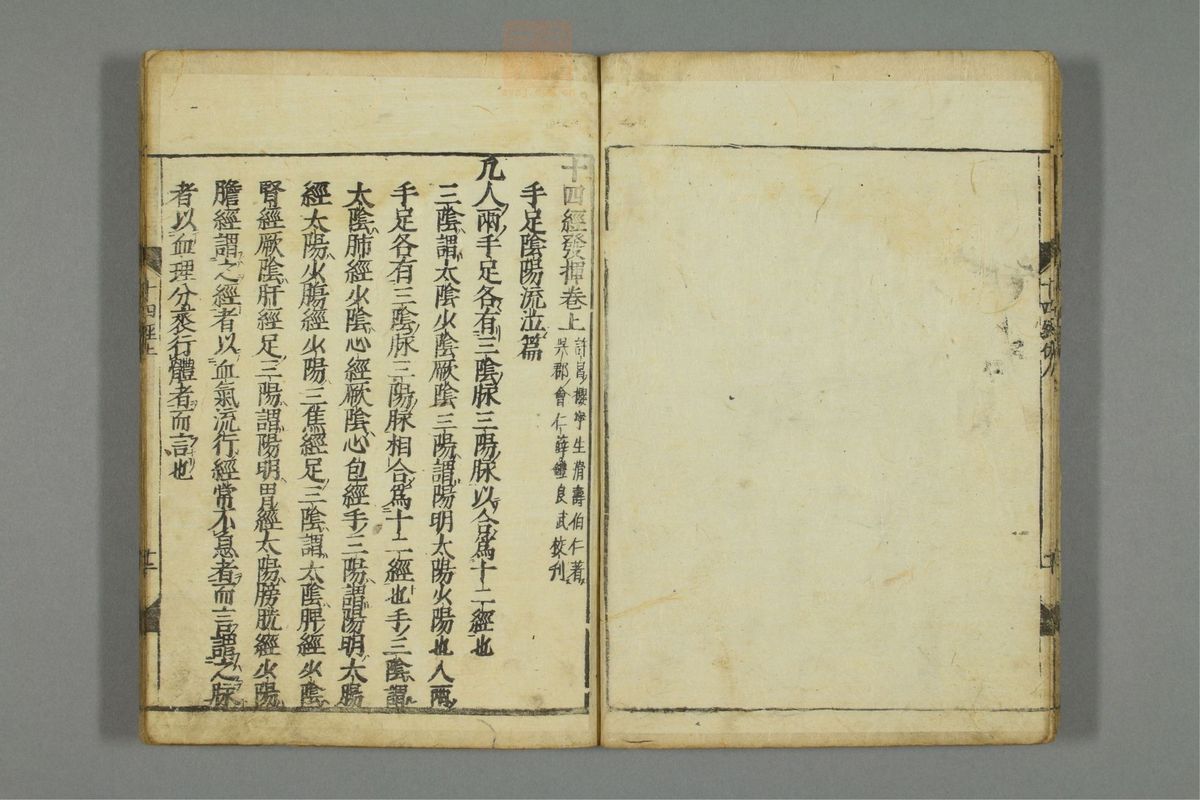 十四經發揮卷上
許昌櫻寧生滑壽伯仁著
吳郡會仁薛鎧良武校刊
手足陰陽流注篇
凡人兩手足各有三陰脉三陽脉以合爲十二經也
三陰謂太陰少陰厥陰三陽謂陽明太陽少陽也人兩
手足各有三陰脉三陽脉相合爲十二經也手三陰謂
太陰肺經少陰心經厥陰心包經手三陽謂陽明大腸
經太陽小腸經少陽三焦經足三陰謂太陰脾經少陰
腎經厥陰肝經足三陽謂陽明胃經太陽膀胱經少陽
膽經謂之經者以血氣流行經常不息者而言謂之脉
者以血理分衺行體者而言也
十四經上